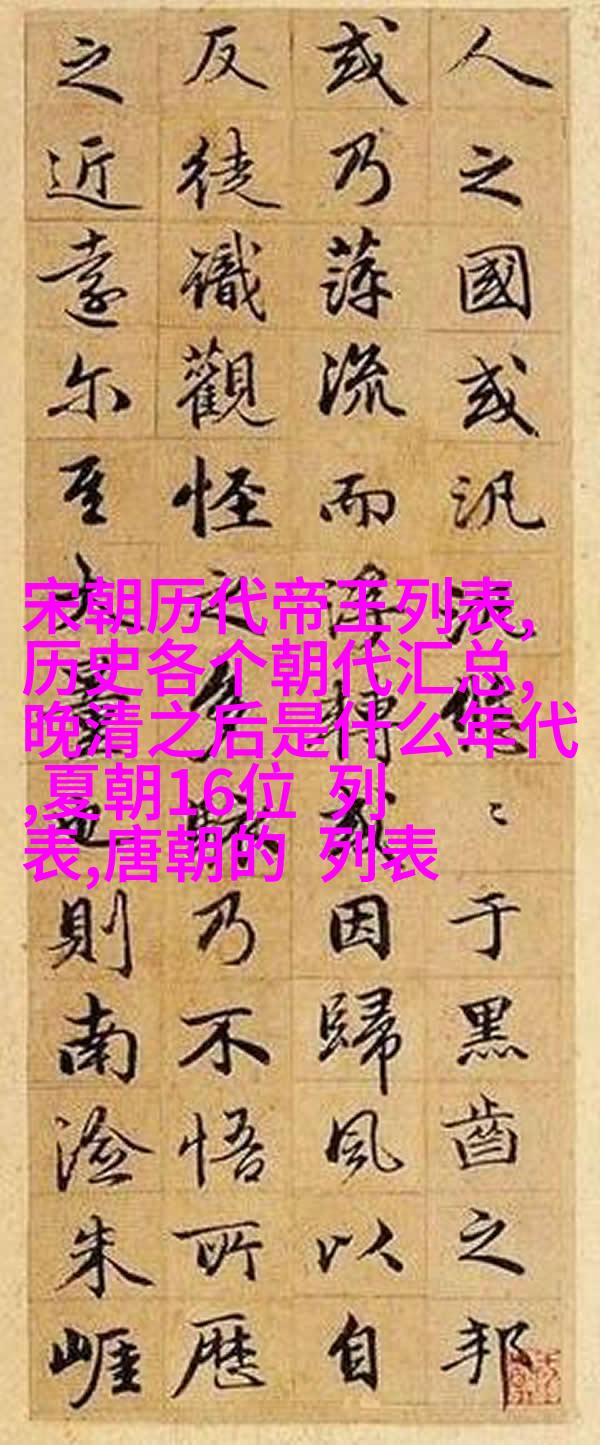 人之國或汎汎悠〻于黑齒之邦
或乃萍流而浮轉或因歸風以自
反徒識觀怪之多駭乃不悟所歷
之近遠尔至大量也則南澰朱崕
宋朝历代帝王列表,
历史各个朝代汇总,
晚清之后是什么年代
,夏朝16位 列
表,唐朝的 列表